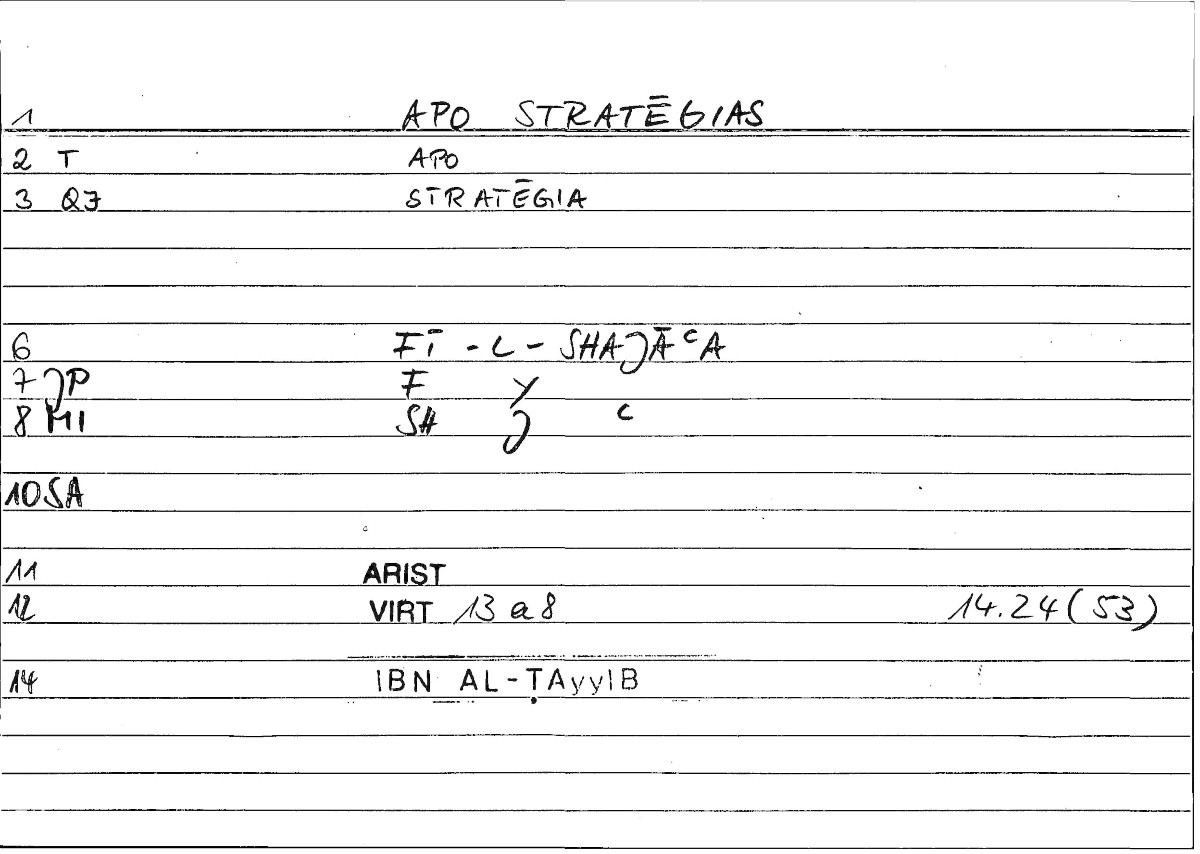 1 APO STRATĒGIAS
2 T APO
3 QJ STRATĒGIA
6 FĪ-L-SHAJĀcA
7 JP F Y
8 MI SH J c
10 SA
11 ARIST
12 VIRT 13 a 8 14.24 (53)
14 IBN AL-ṬAyyIB